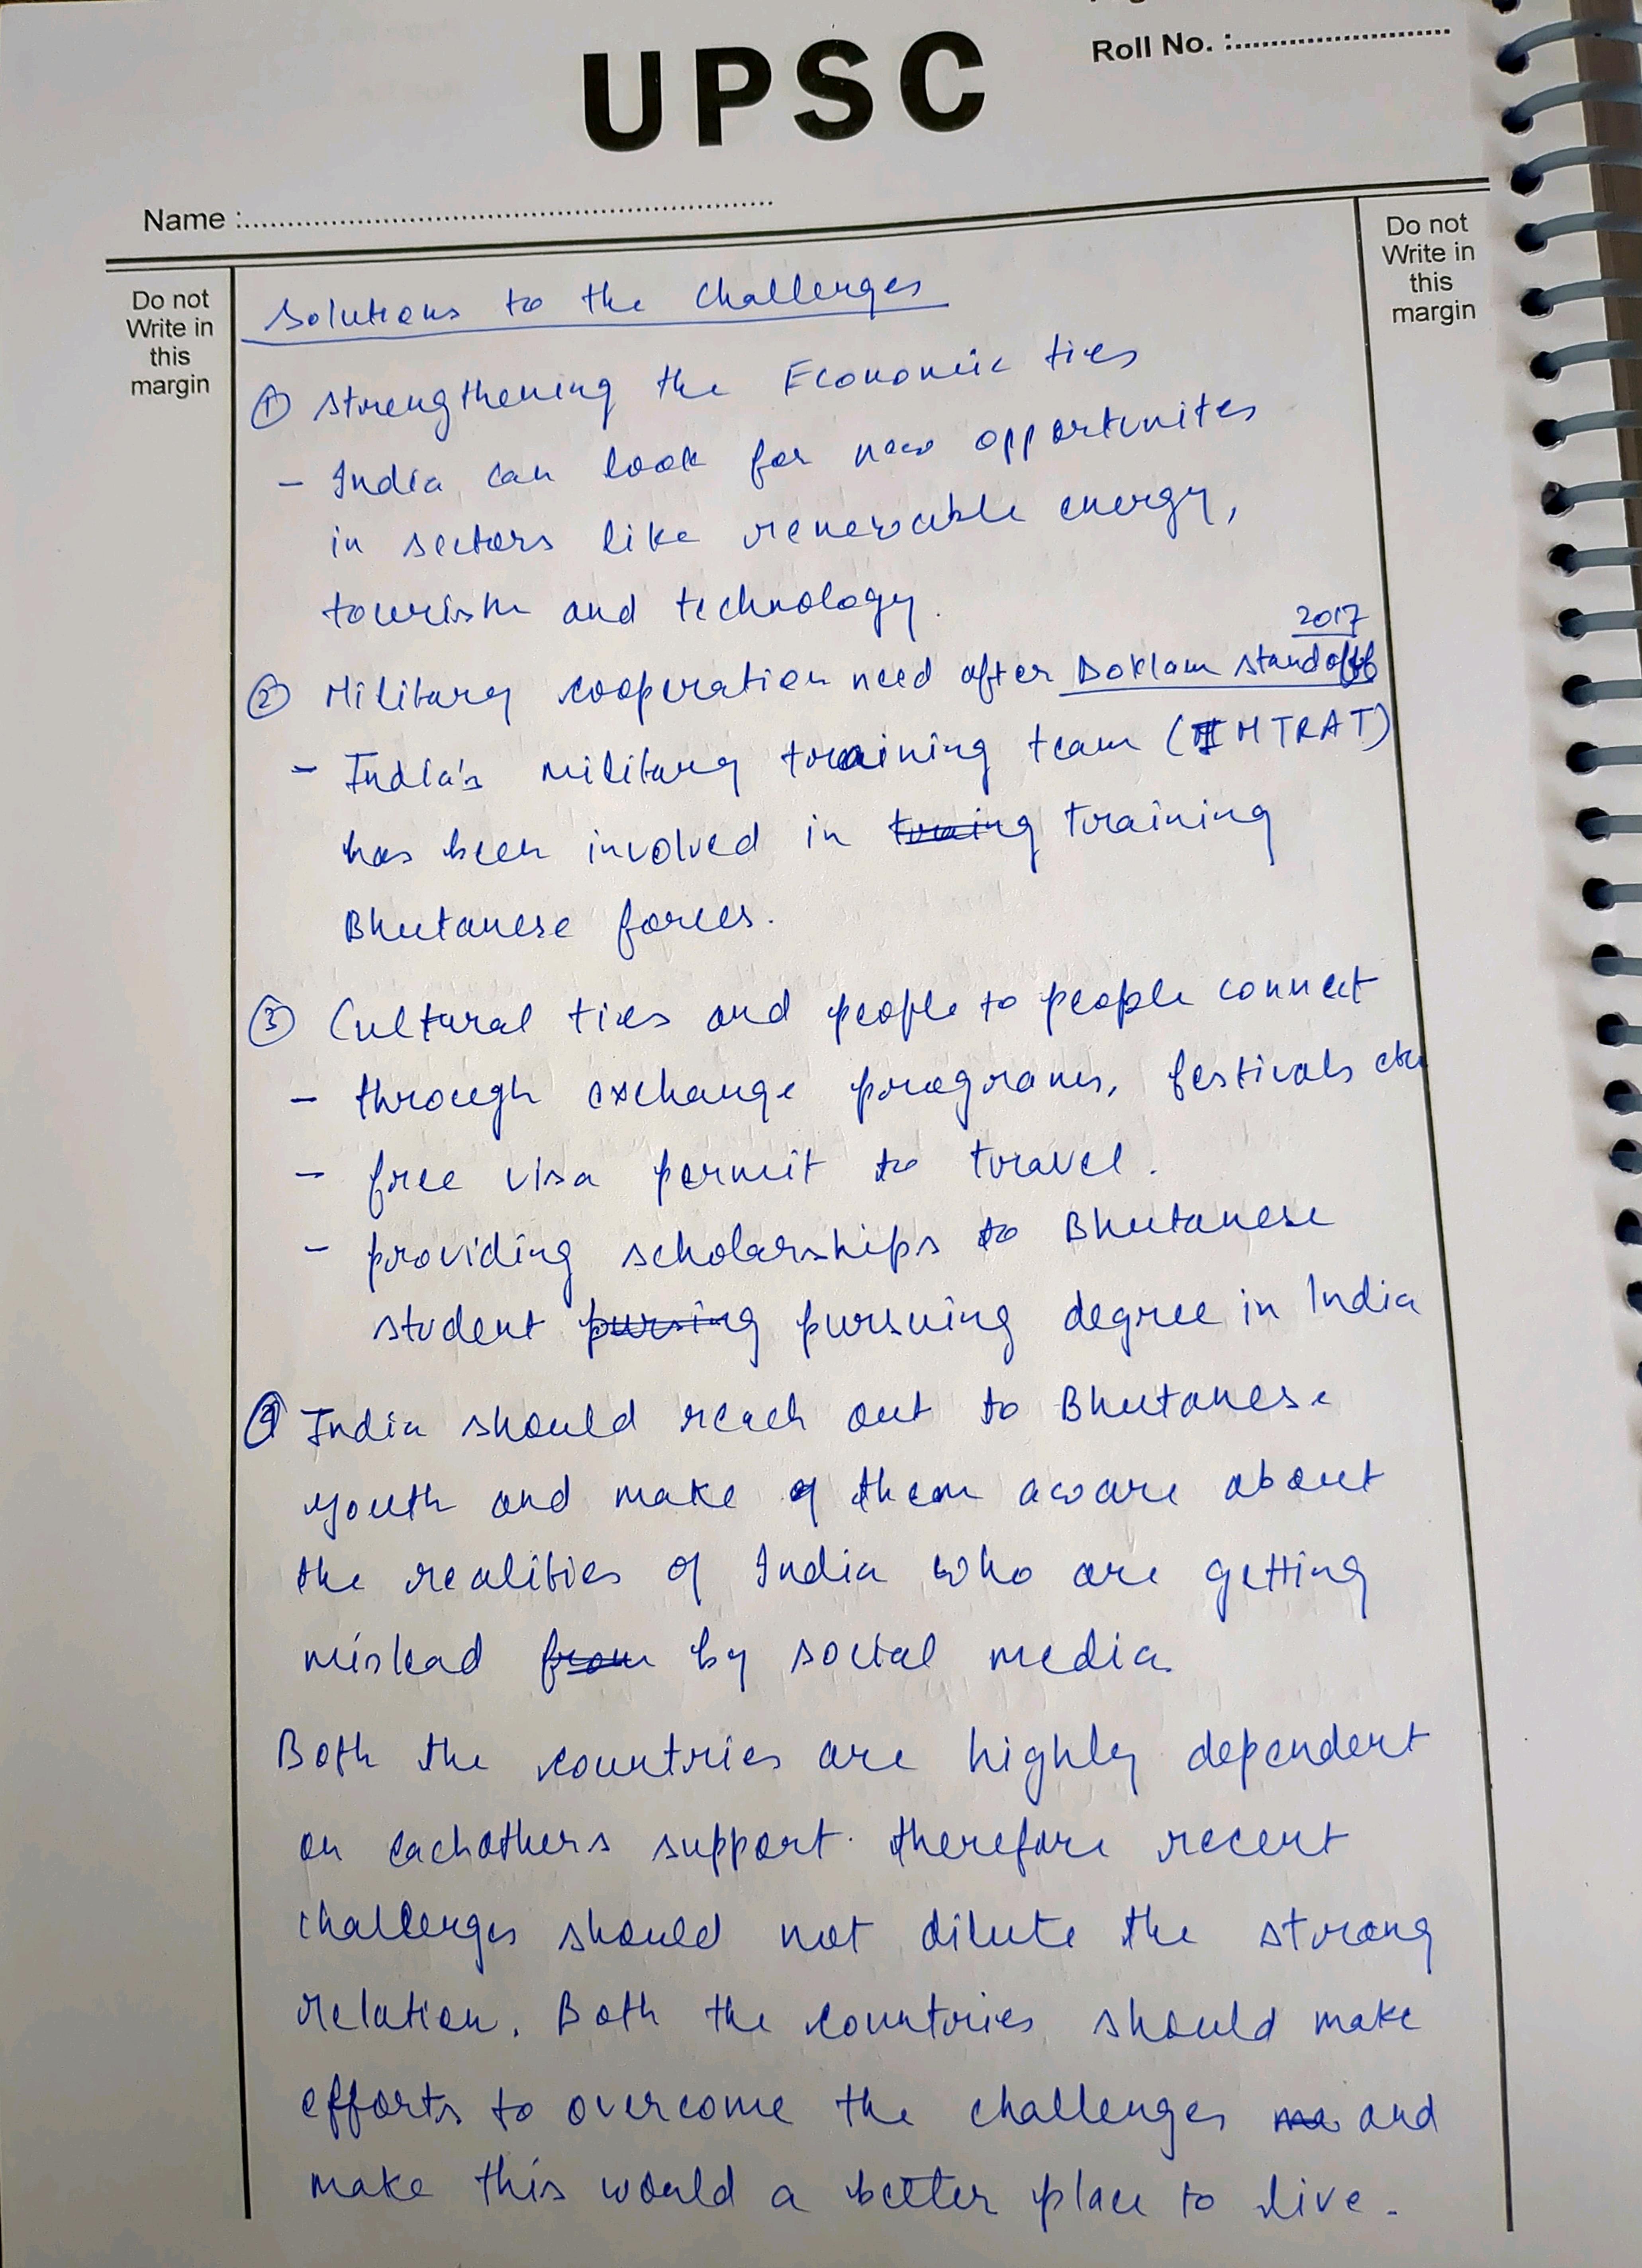 UPSC
Roll No. :
Name :
Do not
Write in
this
margin
Do not
Write in
this
margin
Solutions to the Challenges
① Strengthening the Economic ties
- India can look for new opportunites
in sectors like renewable energy,
tourism and technology.
2017
② Military cooperation need after Doklam standoff
- India's military training team (IMTRAT)
has been involved in training
Bhutanese forces.
③ Cultural ties and people to people connect
- through exchange programs, festivals etc
- free visa permit to travel.
- providing scholarships to Bhutanese
student pursuing degree in India
④ India should reach out to Bhutanese
youth and make them aware about
the realities of India who are getting
mislead by social media
Both the countries are highly dependent
on eachothers support. therefore recent
challenges should not dilute the strong
relation. Both the countries should make
efforts to overcome the challenges and
make this world a better place to live.